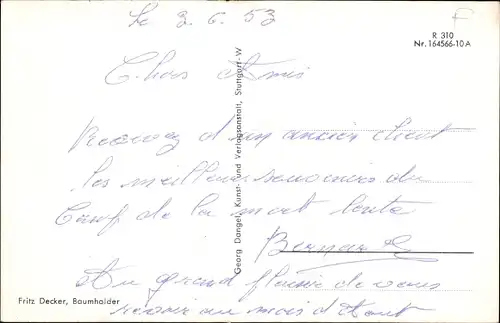 Le 3. 6. 53
R 310
Nr. 164566-10 A
Chers Amis
Recevez d'un ancien client
les meilleurs souvenirs du
Camp de la mort lente
Bernard
Au grand plaisir de vous
revoir au mois d'Aout
Georg Dangel, Kunst- und Verlagsanstalt, Stuttgart-W
Fritz Decker, Baumholder